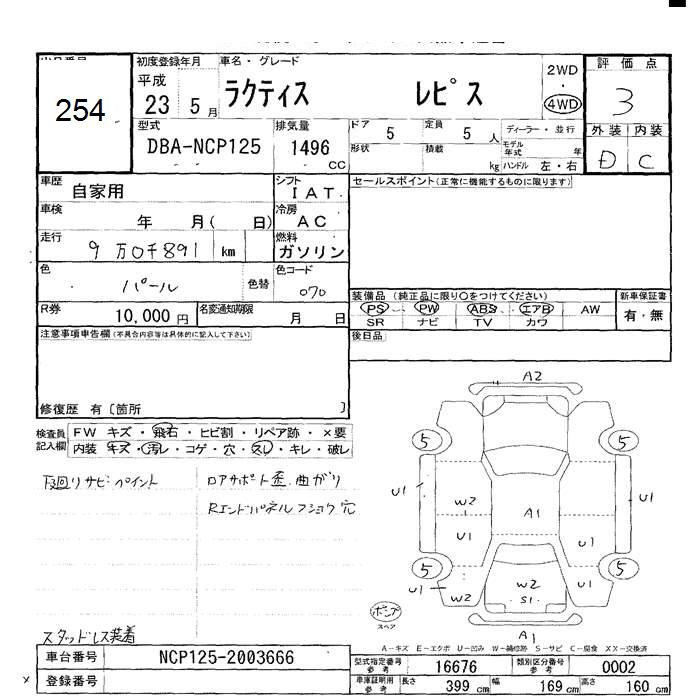 254
初度登録年月
車名・グレード
平成
23 5月
ラクティス レピス
2WD
4WD
評価点
3
外装 内装
D C
型式
DBA-NCP125
排気量
1496 CC
ドア 5
定員 5人
ディーラー・並行
形状
積載 kg
モデル年式 年
ハンドル 左・右
車歴
自家用
シフト
IAT
セールスポイント(正常に機能するものに限ります)
車検
年 月( 日)
冷房
AC
走行
9万0千891 km
燃料
ガソリン
色
パール
色替
色コード
070
装備品 (純正品に限り○をつけてください)
新車保証書
PS PW ABS エアB AW
SR ナビ TV カワ
有・無
R券
10,000円
名変通知期限
月 日
後日品
注意事項申告欄(不具合内容等は具体的に記入して下さい)
修復歴 有〔箇所 〕
検査員記入欄
FW キズ・飛石・ヒビ割・リペア跡・×要
内装 キズ・汚レ・コゲ・穴・スレ・キレ・破レ
下廻りサビ・ペイント
ロアサポート歪 曲がり
Rエンドパネルフショク穴
スタッドレス装着
A2
5 5
U1 U1
W2
A1
U1 U1
5 5
U1
W2
W2
S1
U1
A1
ポンプ
スペア
A-キズ E-エクボ U-凹み W-補修跡 S-サビ C-腐食 XX-交換済
車台番号
NCP125-2003666
型式指定番号 参考
16676
類別区分番号 参考
0002
× 登録番号
車庫証明用 参考
長さ 399 cm
幅 169 cm
高さ 160 cm